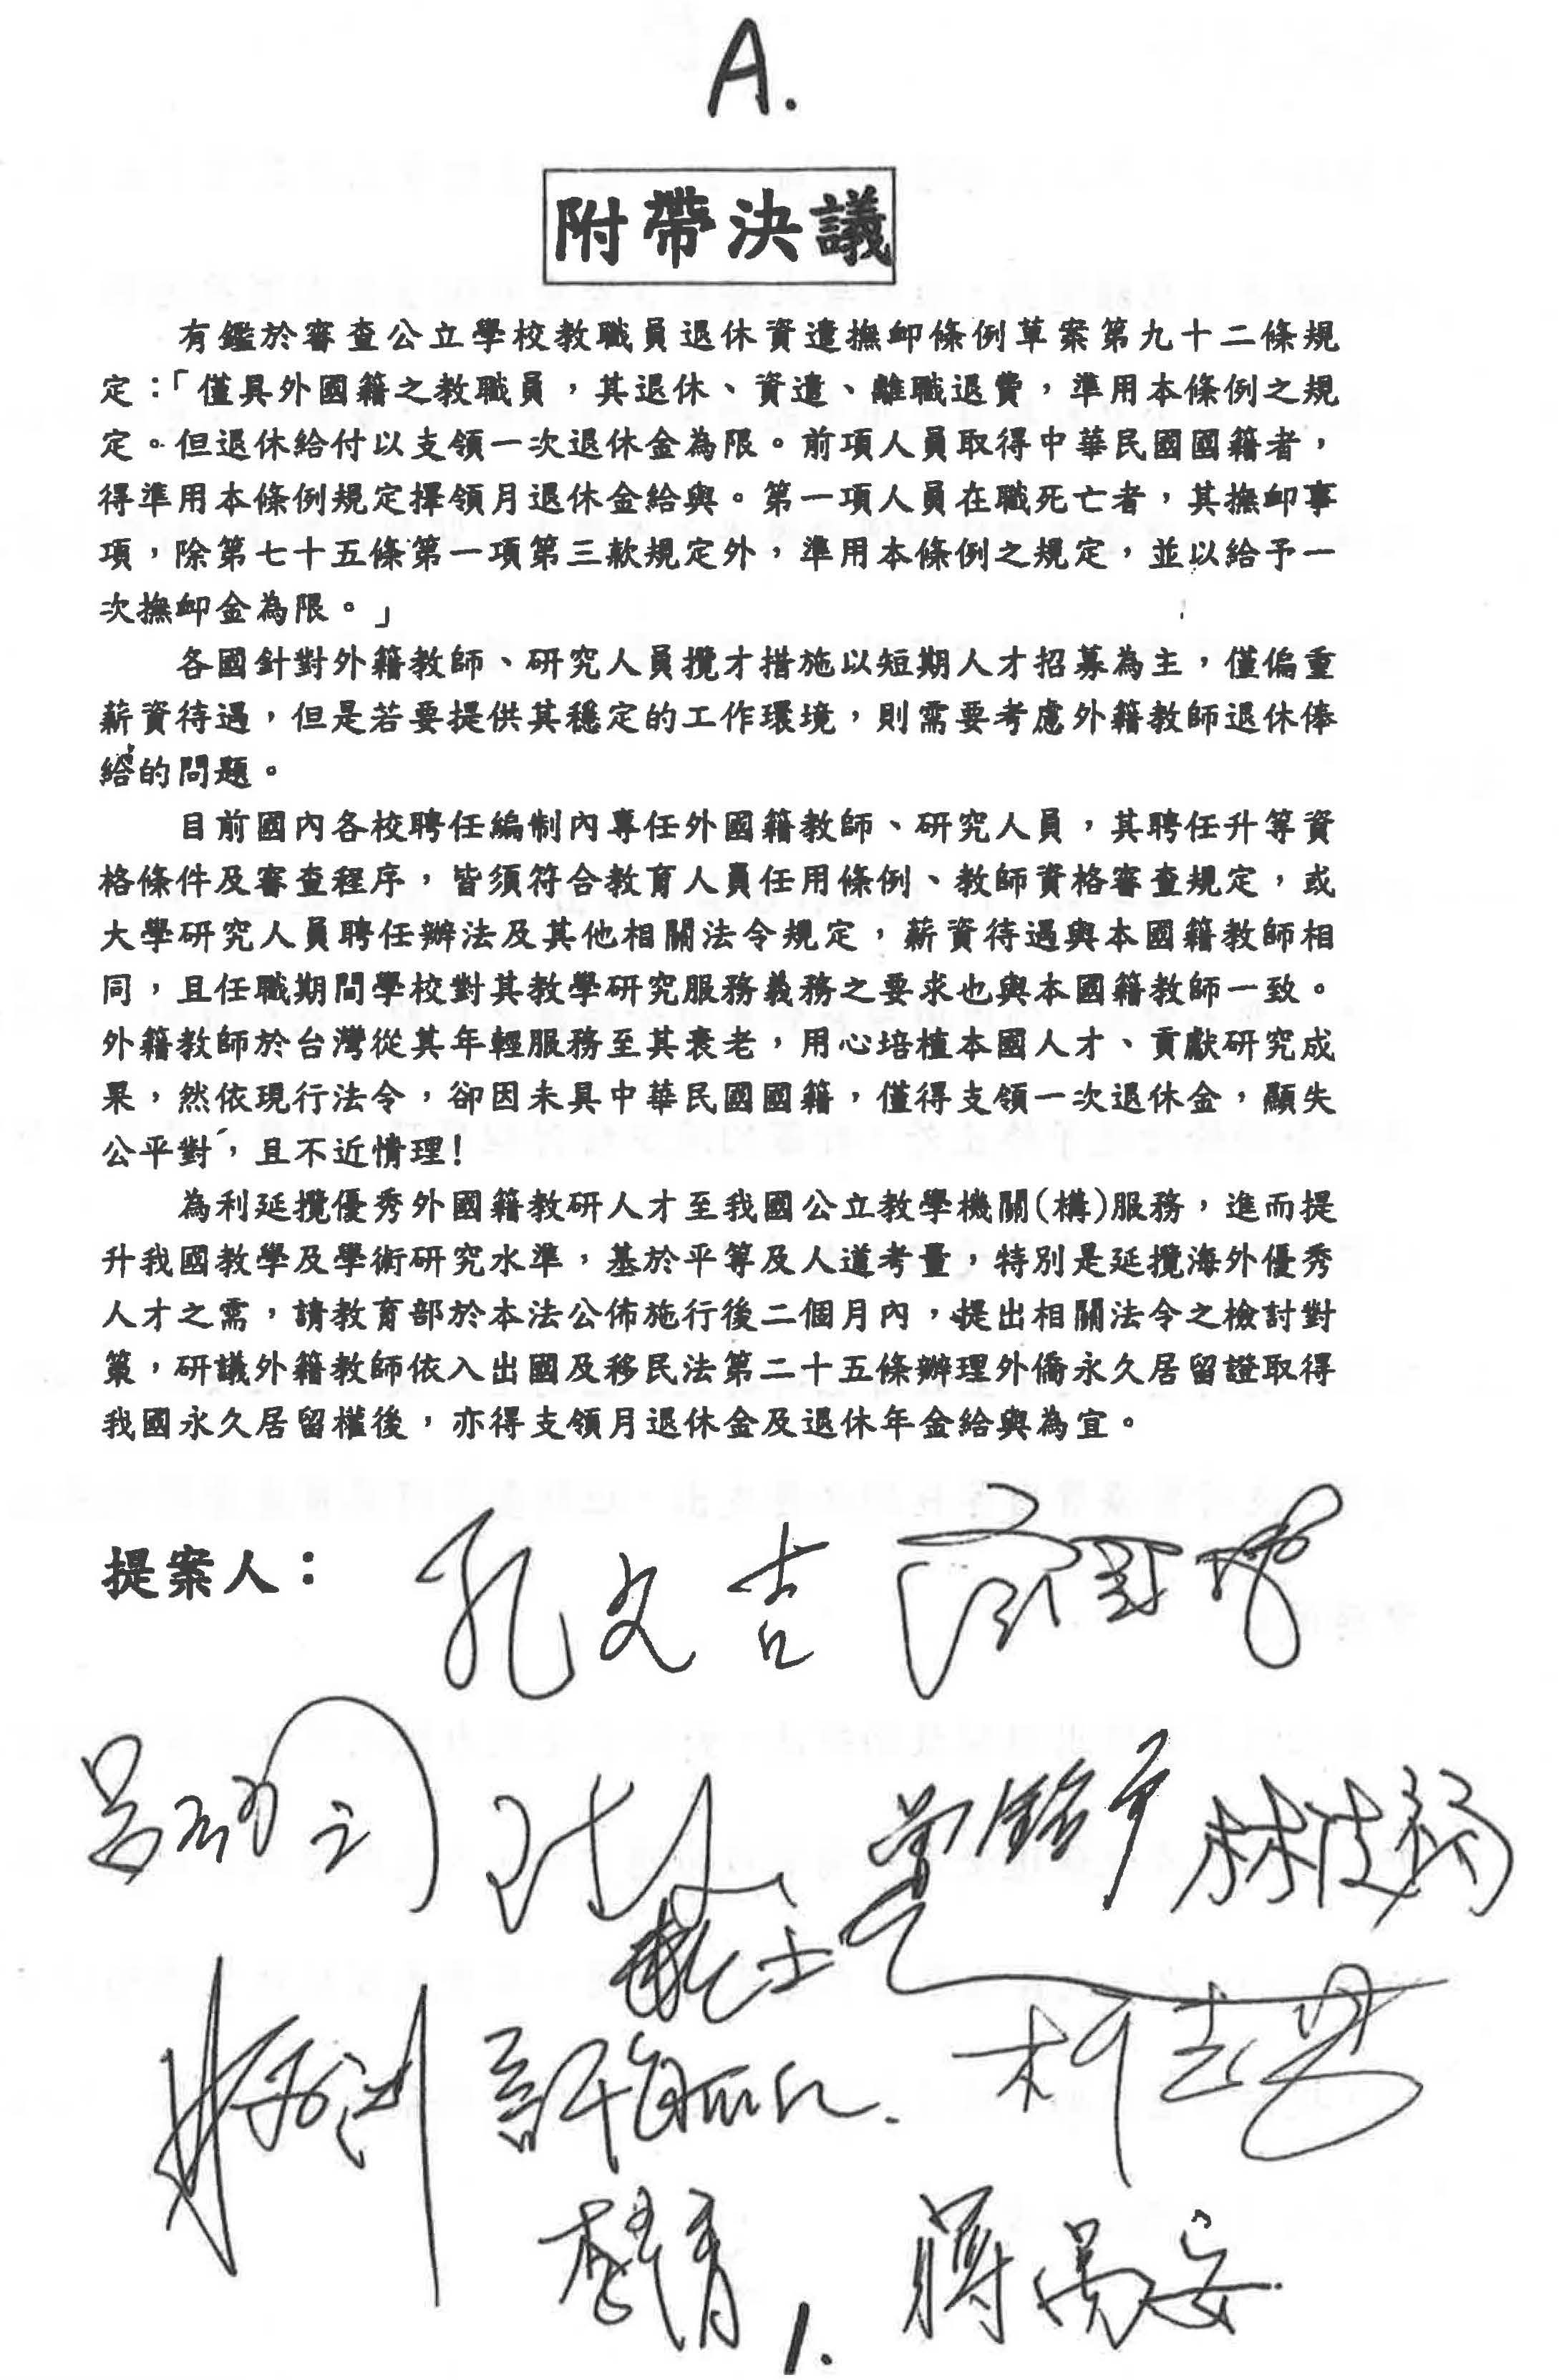 A.
附帶決議
有鑑於審查公立學校教職員退休資遣撫卹條例草案第九十二條規
定:「僅具外國籍之教職員,其退休、資遣、離職退費,準用本條例之規
定。但退休給付以支領一次退休金為限。前項人員取得中華民國國籍者,
得準用本條例規定擇領月退休金給與。第一項人員在職死亡者,其撫卹事
項,除第七十五條第一項第三款規定外,準用本條例之規定,並以給予一
次撫卹金為限。」
各國針對外籍教師、研究人員攬才措施以短期人才招募為主,僅偏重
薪資待遇,但是若要提供其穩定的工作環境,則需要考慮外籍教師退休俸
給的問題。
目前國內各校聘任編制內專任外國籍教師、研究人員,其聘任升等資
格條件及審查程序,皆須符合教育人員任用條例、教師資格審查規定,或
大學研究人員聘任辦法及其他相關法令規定,薪資待遇與本國籍教師相
同,且任職期間學校對其教學研究服務義務之要求也與本國籍教師一致。
外籍教師於台灣從其年輕服務至其衰老,用心培植本國人才、貢獻研究成
果,然依現行法令,卻因未具中華民國國籍,僅得支領一次退休金,顯失
公平對,且不近情理!
為利延攬優秀外國籍教研人才至我國公立教學機關(構)服務,進而提
升我國教學及學術研究水準,基於平等及人道考量,特別是延攬海外優秀
人才之需,請教育部於本法公佈施行後二個月內,提出相關法令之檢討對
策,研議外籍教師依入出國及移民法第二十五條辦理外僑永久居留證取得
我國永久居留權後,亦得支領月退休金及退休年金給與為宜。
提案人: 孔文吉
柯志恩
蔣萬安
1.